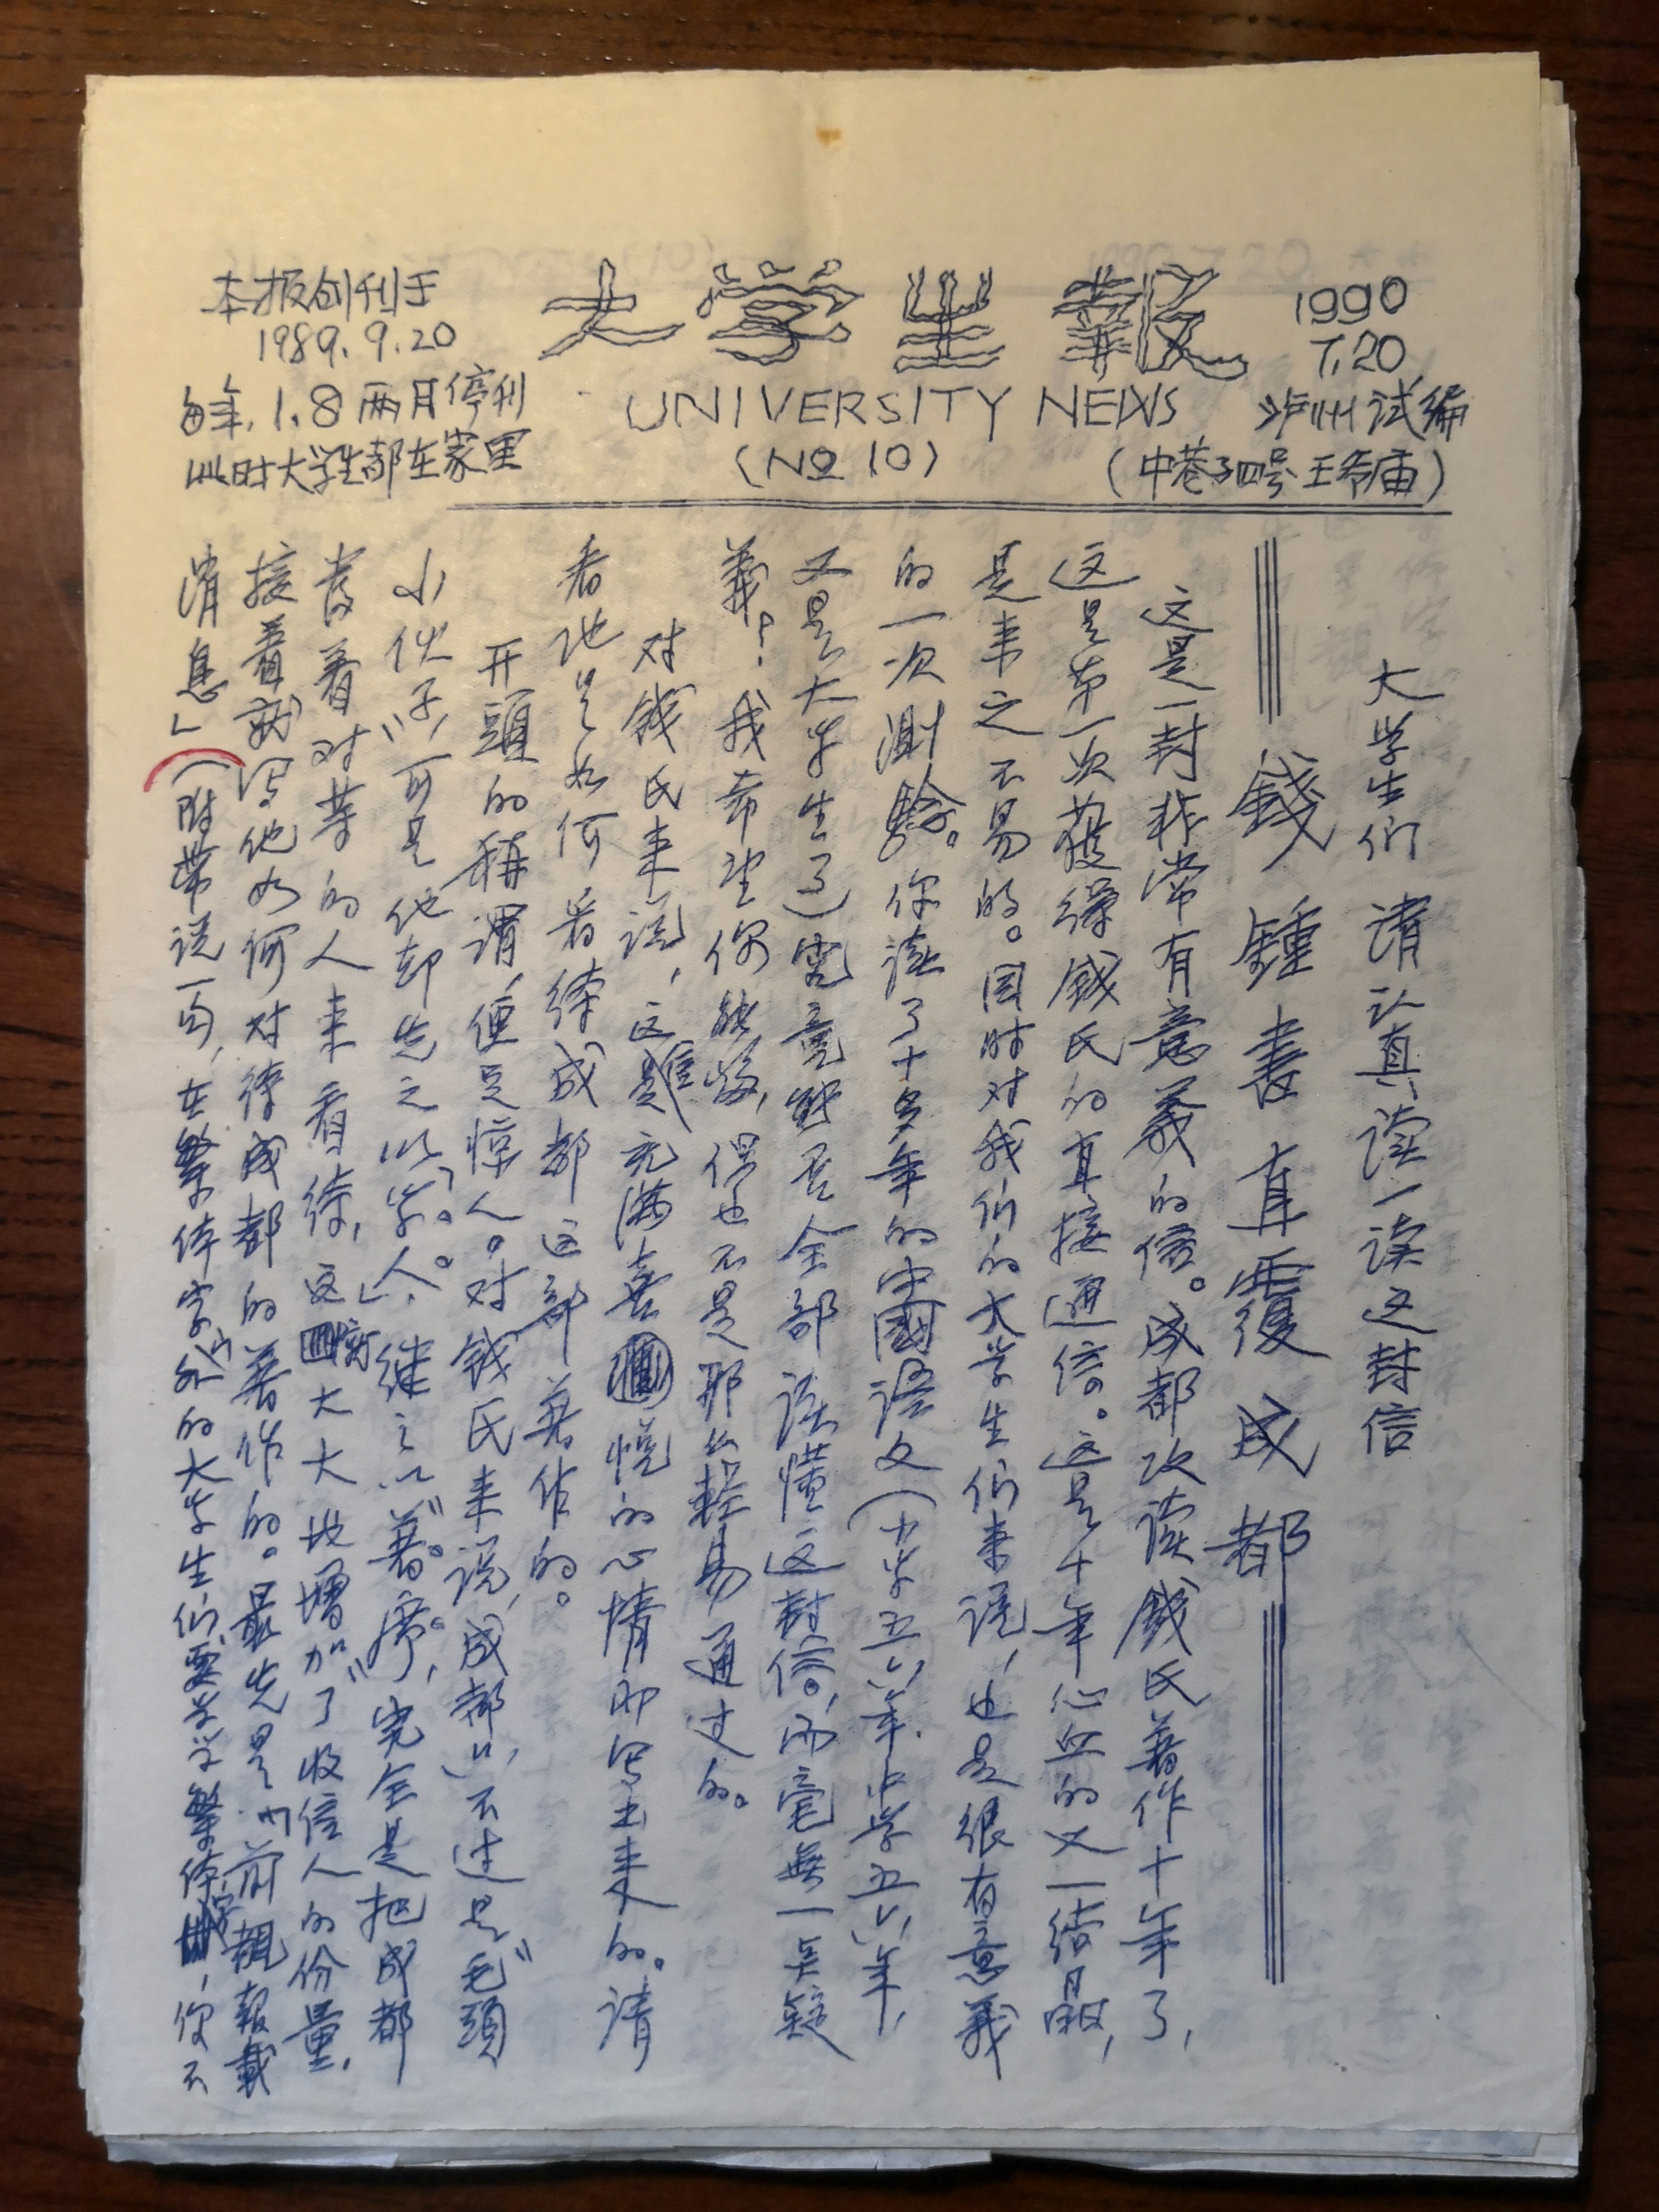 本报创刊于
1989.9.20
每年.1.8两月停刊
此时大学生都在家里
大学生報
UNIVERSITY NEWS
(NO 10)
1990
7.20
泸州试编
(中巷子四号王爷庙)
大学生们 请认真读一读这封信
錢鍾書直覆成都
这是一封非常有意義的信。成都攻读錢氏著作十年了,
这是第一次获得錢氏的直接通信。这是十年心血的又一结晶,
是来之不易的。同时对我们的大学生们来说,也是很有意義
的一次测验。你读了十多年的中國语文(小学五六年.中学五六年,
又是大学生了)究竟能否全部读懂这封信,而毫無一点疑
義?!我希望你能够,但也不是那么轻易通过的。
对錢氏来说,这是充满喜悦的心情而写出来的。请
看他是如何看待成都这部著作的。
开頭的稱谓,便足惊人。对钱氏来说,成都只不过是“毛頭
小伙子”可是他却先之以“学人”,继之以“著席”,完全是把成都
当着对等的人来看待,这大大地增加了收信人的份量,
接着就写他如何对待成都的著作的。最先是「前親報載
消息」(附带说一句,在繁体字外的大学生们要学学繁体字,你不